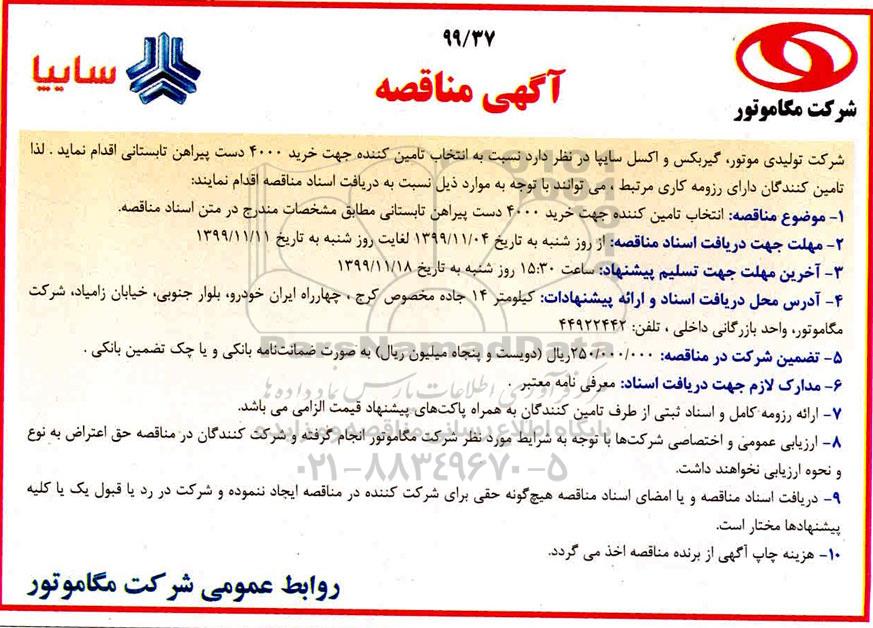 ۹۹/۳۷
آگهی مناقصه
سایپا
شرکت مگاموتور
شرکت تولیدی موتور، گیربکس و اکسل سایپا در نظر دارد نسبت به انتخاب تامین کننده جهت خرید ۴۰۰۰ دست پیراهن تابستانی اقدام نماید . لذا
تامین کنندگان دارای رزومه کاری مرتبط ، می توانند با توجه به موارد ذیل نسبت به دریافت اسناد مناقصه اقدام نمایند:
۱- موضوع مناقصه: انتخاب تامین کننده جهت خرید ۴۰۰۰ دست پیراهن تابستانی مطابق مشخصات مندرج در متن اسناد مناقصه.
۲- مهلت جهت دریافت اسناد مناقصه: از روز شنبه به تاریخ ۱۳۹۹/۱۱/۰۴ لغایت روز شنبه به تاریخ ۱۳۹۹/۱۱/۱۱
۳- آخرین مهلت جهت تسلیم پیشنهاد: ساعت ۱۵:۳۰ روز شنبه به تاریخ ۱۳۹۹/۱۱/۱۸
۴- آدرس محل دریافت اسناد و ارائه پیشنهادات: کیلومتر ۱۴ جاده مخصوص کرج ، چهارراه ایران خودرو، بلوار جنوبی، خیابان زامیاد، شرکت
مگاموتور، واحد بازرگانی داخلی ، تلفن: ۴۴۹۲۲۴۴۲
۵- تضمین شرکت در مناقصه: ۲۵۰/۰۰۰/۰۰۰ریال (دویست و پنجاه میلیون ریال) به صورت ضمانت‌نامه بانکی و یا چک تضمین بانکی .
۶- مدارک لازم جهت دریافت اسناد: معرفی نامه معتبر .
۷- ارائه رزومه کامل و اسناد ثبتی از طرف تامین کنندگان به همراه پاکت‌های پیشنهاد قیمت الزامی می باشد.
۸- ارزیابی عمومی و اختصاصی شرکت‌ها با توجه به شرایط مورد نظر شرکت مگاموتور انجام گرفته و شرکت کنندگان در مناقصه حق اعتراض به نوع
و نحوه ارزیابی نخواهند داشت.
۹- دریافت اسناد مناقصه و یا امضای اسناد مناقصه هیچ‌گونه حقی برای شرکت کننده در مناقصه ایجاد ننموده و شرکت در رد یا قبول یک یا کلیه
پیشنهادها مختار است.
۱۰- هزینه چاپ آگهی از برنده مناقصه اخذ می گردد.
روابط عمومی شرکت مگاموتور
ParsNamadData
مرکز فرآوری اطلاعات پارس نماد داده ها
پایگاه اطلاع رسانی مناقصه و مزایده
۰۲۱-۸۸۳۴۹۶۷۰-۵